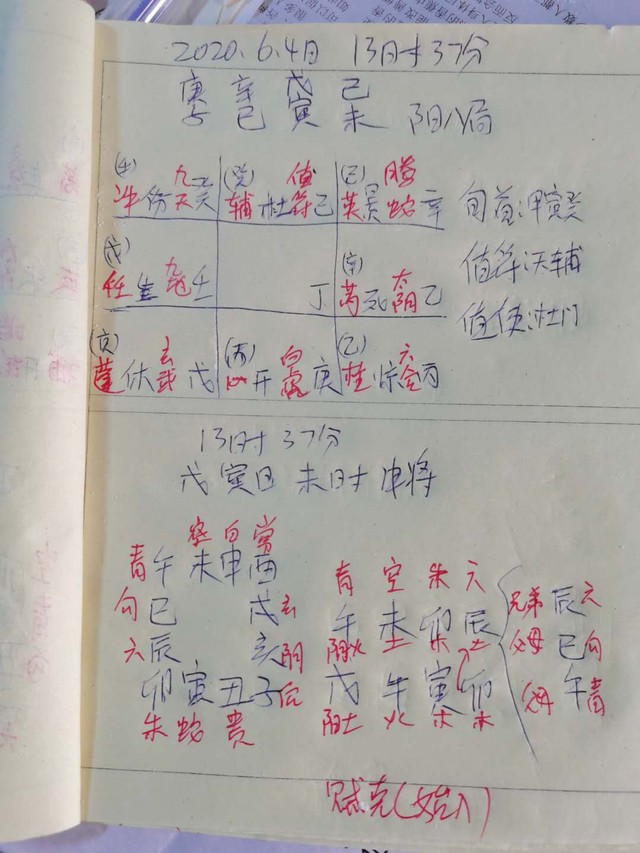 2020.6.4日 13时37分
庚 辛 戊 己
子 巳 寅 未 阳八局
(壬) (癸) 值 (己) 螣
冲 伤 九天 癸 辅 杜 值符 己 英 景 螣蛇 辛 旬首:甲寅癸
(戊) (辛) 值符:天辅
任 生 九地 壬 丁 芮 死 太阴 乙
值使:杜门
(庚) (丙) (乙)
蓬 休 玄武 戊 心 开 白虎 庚 柱 惊 六合 丙
13时37分
戊寅日 未时 申将
空 白 常
青 午 未 申 酉
勾 巳 戌 玄
六 辰 亥 阴
卯 寅 丑 子 后
朱 蛇 贵
青 空 朱 六
午 未 卯 辰
阳火 土 木 土
戊 午 寅 卯
阳土 火 木 木
兄弟 辰 六
父母 巳 勾
父母 午 青
元首克(始入)